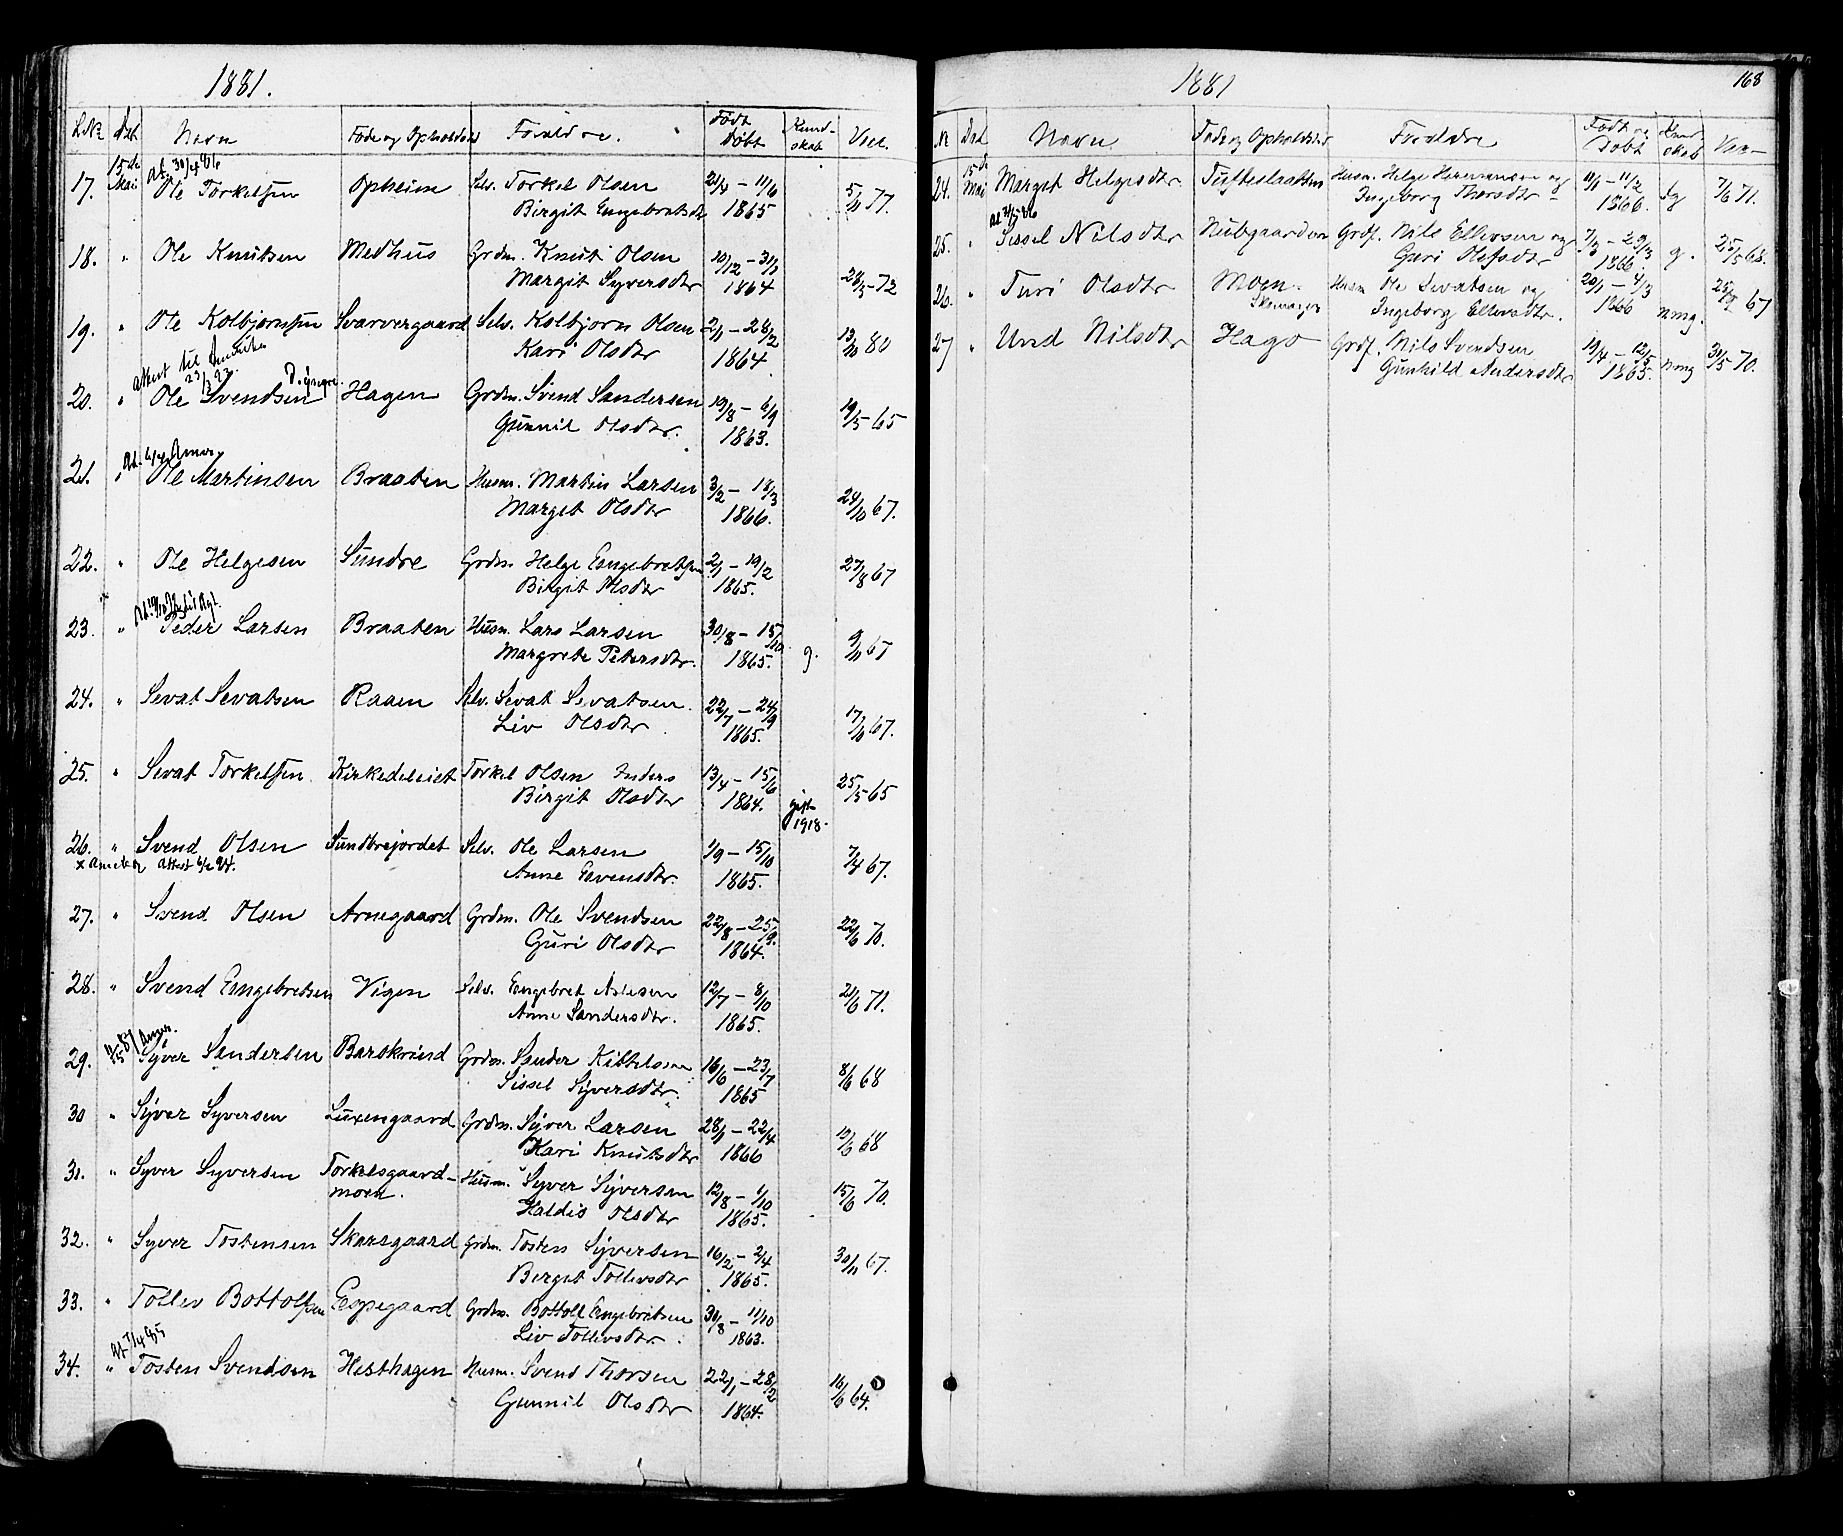 1881.
L.No Dat. Navn Føde og Opholdsted Forældre. Født Døbt Kundskab Vac.
17. 15de Mai At. 30/4 86 Ole Torkelsen Opheim Selv. Torkel Olsen 21/4 – 11/6 5/11 77.
Birgit Engebretsdtr 1865
18. " Ole Knutsen Medhus Grdm. Knut Olsen 10/12 – 31/1 28/5 – 72
Margit Syversdtr 1864
19. " Ole Kolbjørnsen Svarvergaard Selv. Kolbjørn Olsen 2/1 – 28/2 13/10 80
Kari Olsdtr 1864
attest til Amerika
23/3 93.
20. " Ole Svendsen Hagen Grdm. Svend Sandersen 19/8 – 6/9 19/5 – 65
Gunnil Olsdtr. 1863.
At. 6/4 Amer.
21. " Ole Martinsen Braaten Husm. Martin Larsen 3/2 – 18/3 24/10 67.
Marget Olsdtr 1866.
22. " Ole Helgesen Sundre Grdm. Helge Engebretsen 2/1 – 19/2 27/8 67
Birgit Olsdtr 1865.
23. " Peder Larsen Braaten Husm. Lars Larsen 30/8 – 15/10 g. 9/11 67
Margrete Petersdtr. 1865.
24. " Sevat Sevatsen Raaen Selv. Sevat Sevatsen 22/7 – 24/9 17/10 67.
Liv Olsdtr 1865.
25. " Sevat Torkelsen Kirkedeleiet Torkel Olsen Inders 13/4 – 15/6 25/5 – 65
Birgit Olsdtr 1864. gift 1918.
26. " Svend Olsen Sundrejordet Selv. Ole Larsen 1/9 – 15/10 7/4 67.
x Amerika attest 6/2 94. Anne Evensdtr. 1865.
27. " Svend Olsen Arnegaard Grdm. Ole Svendsen 22/8 – 25/9. 22/6 70.
Guri Olsdtr 1864.
28. " Svend Engebretsen Vigen Selv. Engebret Aslesen 12/7 – 8/10 21/6 71.
Anne Sandersdtr. 1865.
Amer.
29. Syver Sandersen Barskrind Grdm. Sander Kittelsen 16/6 – 23/7 8/6 68
Sissel Syversdtr. 1865
30 " Syver Syversen Luxengaard Grdm. Syver Larsen 28/1 – 22/4 12/6 68
Kari Knutsdtr 1866
31. " Syver Syversen Torkelsgaard- Husm. Syver Syversen 12/8 – 1/10 15/6 70.
moen. Haldis Olsdtr 1865.
32. " Syver Tostensen Skarsgaard Grdm. Tosten Syversen 16/2 – 2/4 30/11 67.
Birgit Tollevsdtr 1865.
33. " Tollev Bottolfsen Espegaard Grdm. Bottolf Engebretsen 31/8 – 11/10
Liv Tollevsdtr. 1863.
At. 7/4 95
34. " Tosten Svendsen Hesthagen Husm. Svend Thorsen 22/1 – 28/2 16/6 64.
Gunnil Olsdtr 1864.
1881
168
N. Dat Navn Føde og Opholdsted Forældre Født og Døbt Kundskab Vac–
24. 15de Mai Margit Helgesdtr Tufteslaatten Husm. Helge Hermansen og 11/1 – 11/2 tg 7/6 71.
Ingeborg Thorsdtr – 1866.
25. " Sissel Nilsdtr Nubgaarden Grdf. Nils Ellevsen og 7/3 – 29/3 g. 25/5 68.
Guri Olefsdtr 1866
26. " Turi Olsdtr Moen. Husm Ole Sevatsen og 20/1 – 4/3 nmg. 67
Skomager Ingeborg Ellevsdtr. 1866
27 " Und Nilsdtr Hago Grdf. Nils Svendsen 19/4 – 12/5 nmg 31/5 70.
Gunhild Andersdtr 1865.